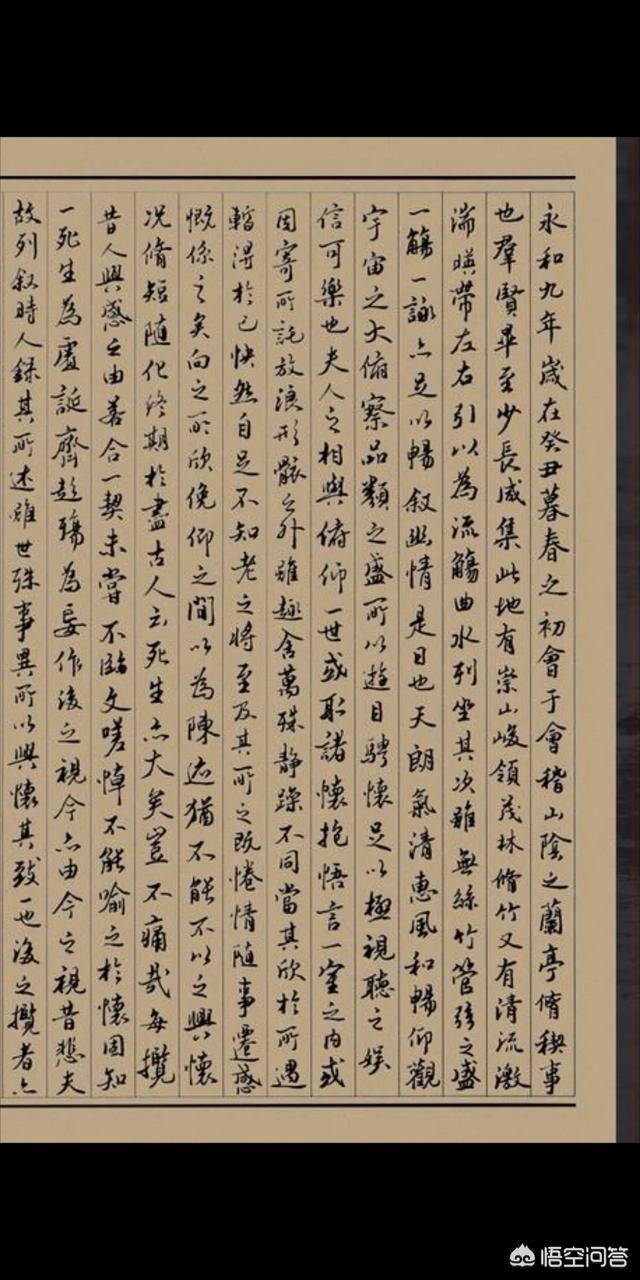 永和九年歲在癸丑暮春之初會于會稽山陰之蘭亭脩稧事
也羣賢畢至少長咸集此地有崇山峻領茂林脩竹又有清流激
湍暎帶左右引以為流觴曲水列坐其次雖無絲竹管弦之盛
一觴一詠亦足以暢叙幽情是日也天朗氣清惠風和暢仰觀
宇宙之大俯察品類之盛所以遊目騁懷足以極視聽之娛
信可樂也夫人之相與俯仰一世或取諸懷抱悟言一室之內或
因寄所託放浪形骸之外雖趣舍萬殊静躁不同當其欣於所遇
暫得於己快然自足不知老之將至及其所之既惓情隨事遷感
慨係之矣向之所欣俛仰之間以為陳迹猶不能不以之興懷
况脩短隨化終期於盡古人云死生亦大矣豈不痛哉每攬
昔人興感之由若合一契未嘗不臨文嗟悼不能喻之於懷固知
一死生為虛誕齊彭殤為妄作後之視今亦由今之視昔悲夫
故列叙時人錄其所述雖世殊事異所以興懷其致一也後之攬者亦
悟空问答